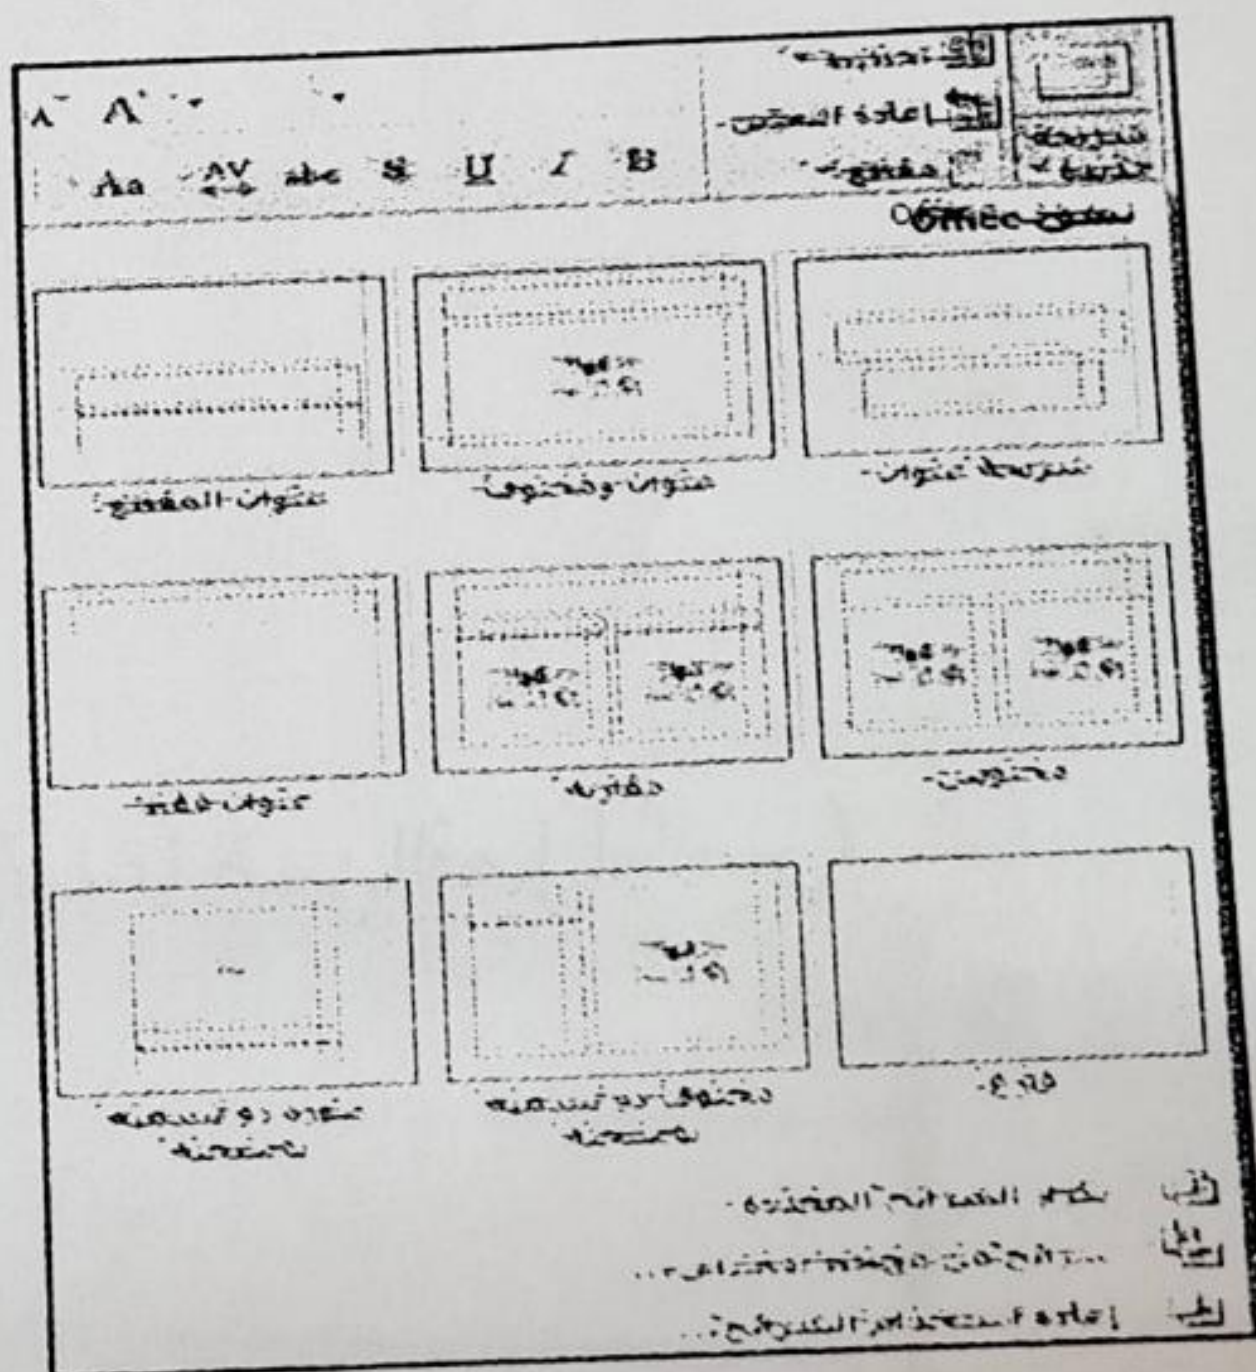 تخطيط
إعادة التعيين
مقطع
شريحة
جديدة
A A
B I U S abc AV Aa
نسق Office
شريحة عنوان
عنوان ومحتوى
عنوان المقطع
محتويين
مقارنة
عنوان فقط
فارغ
محتوى ذو تسمية
توضيحية
صورة ذو تسمية
توضيحية
تكرار الشرائح المحددة
شرائح من مخطط تفصيلي...
إعادة استخدام الشرائح...